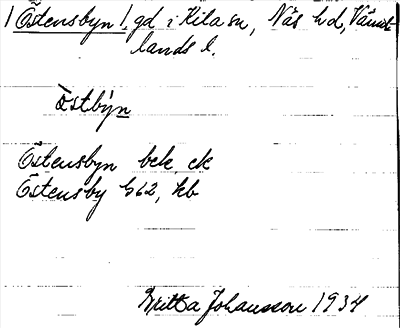 Östensbyn 1, gd i Kila sn, Näs hd, Värm-
lands l.
òstbýn
Östensbyn bek, ek
Östensby G62, kb
Britta Johansson 1934